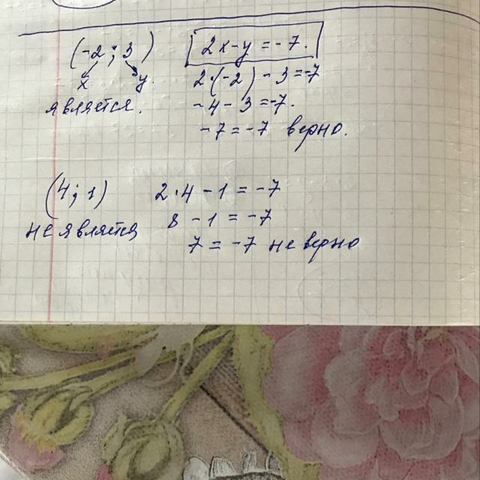 (-2; 3) 2x-y=-7.
x y 2·(-2)-3=-7
является. -4-3=-7.
-7=-7 верно.
(4; 1) 2·4-1=-7
не является 8-1=-7
7=-7 не верно